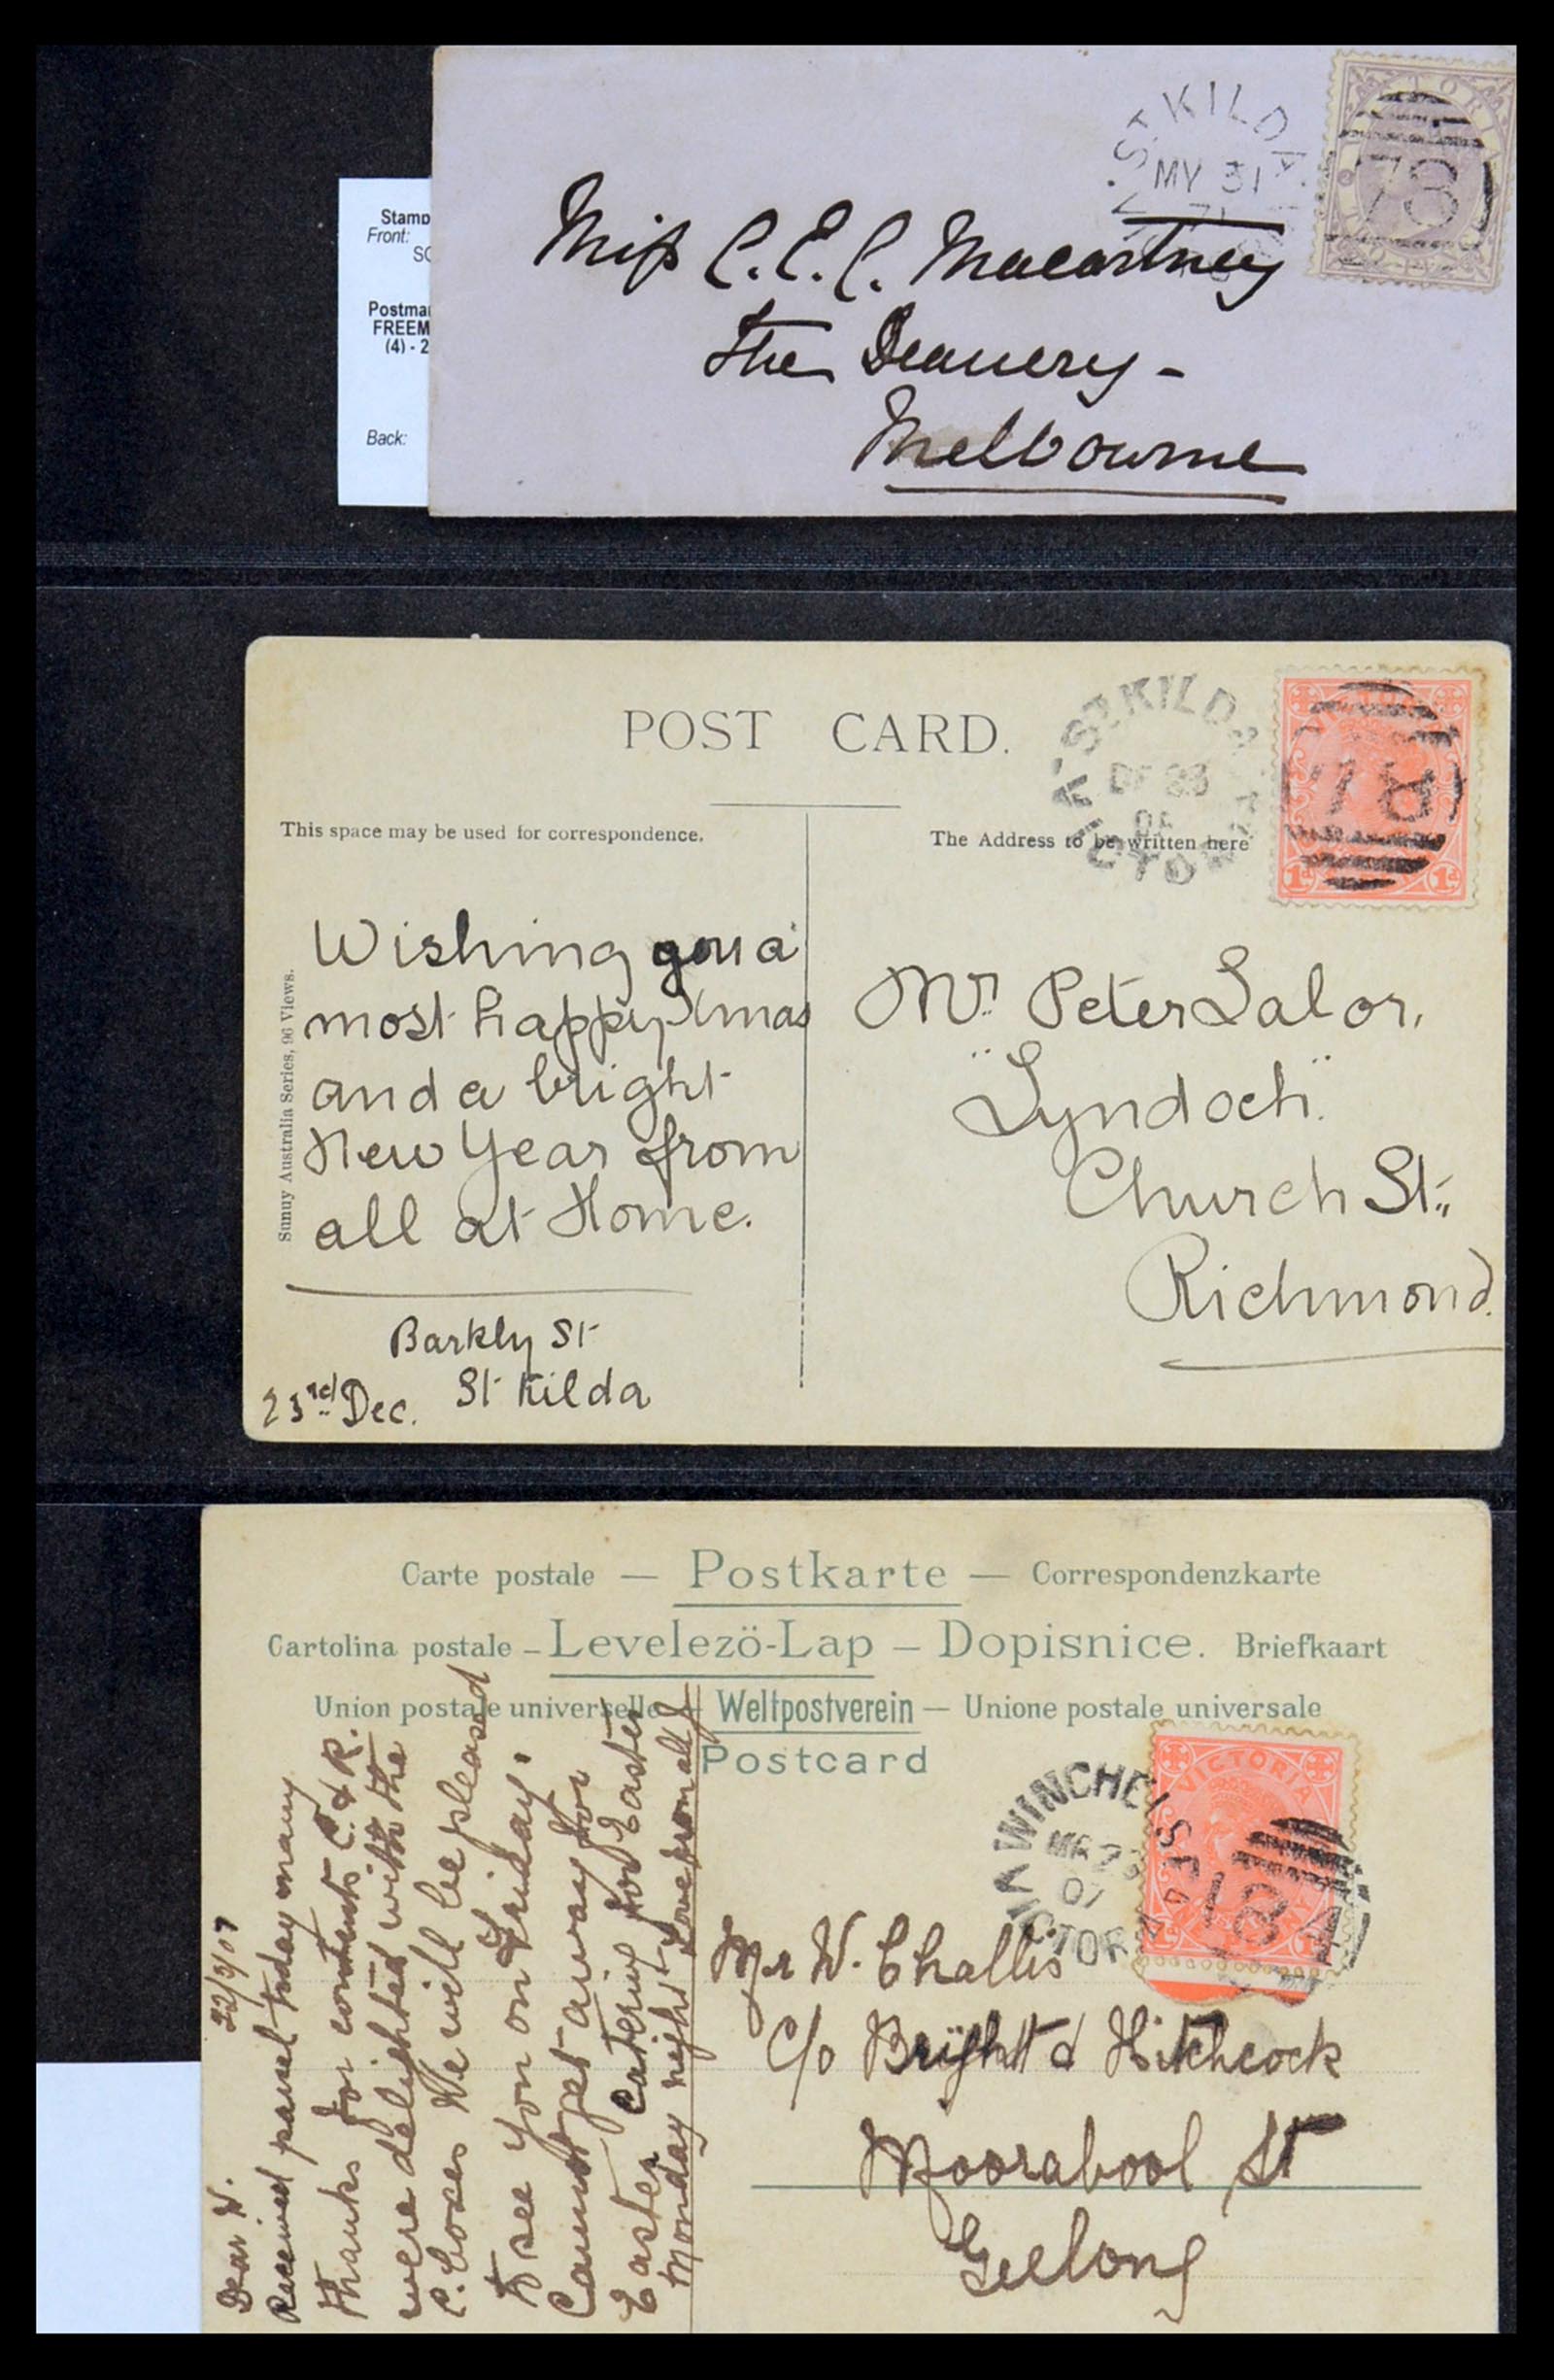 Stamp
Front:
SG
Postmar
FREEM
(4) - 2
Back:
ST. KILDA
MY 31
71
78
Miss C. E. C. Macartney
The Deanery -
Melbourne
POST CARD.
ST KILDA
DE 23
VICTORIA
78
1d 1d
This space may be used for correspondence.
The Address to be written here
Sunny Australia Series, 96 Views.
Wishing you a
most happy Xmas
and a bright
New Year from
all at Home.
Barkly St
St Kilda
23rd Dec.
Mr. Peter Lalor,
"Lyndoch".
Church St.,
Richmond.
Carte postale — Postkarte — Correspondenzkarte
Cartolina postale – Levelezö-Lap – Dopisnice. Briefkaart
Union postale universelle – Weltpostverein – Unione postale universale
Postcard
WINCHELSEA
MR 23
07
VICTORIA
VICTORIA
184
22/3/07
Dear W.
Received parcel today many
thanks for contents C. & R.
were delighted with the
C. boxes We will be pleased
to see you on Friday.
Cannot get away for
Easter Catering for Easter
Monday night Love from all
Mr W. Challis
C/o Bright & Hitchcock
Moorabool St
Geelong